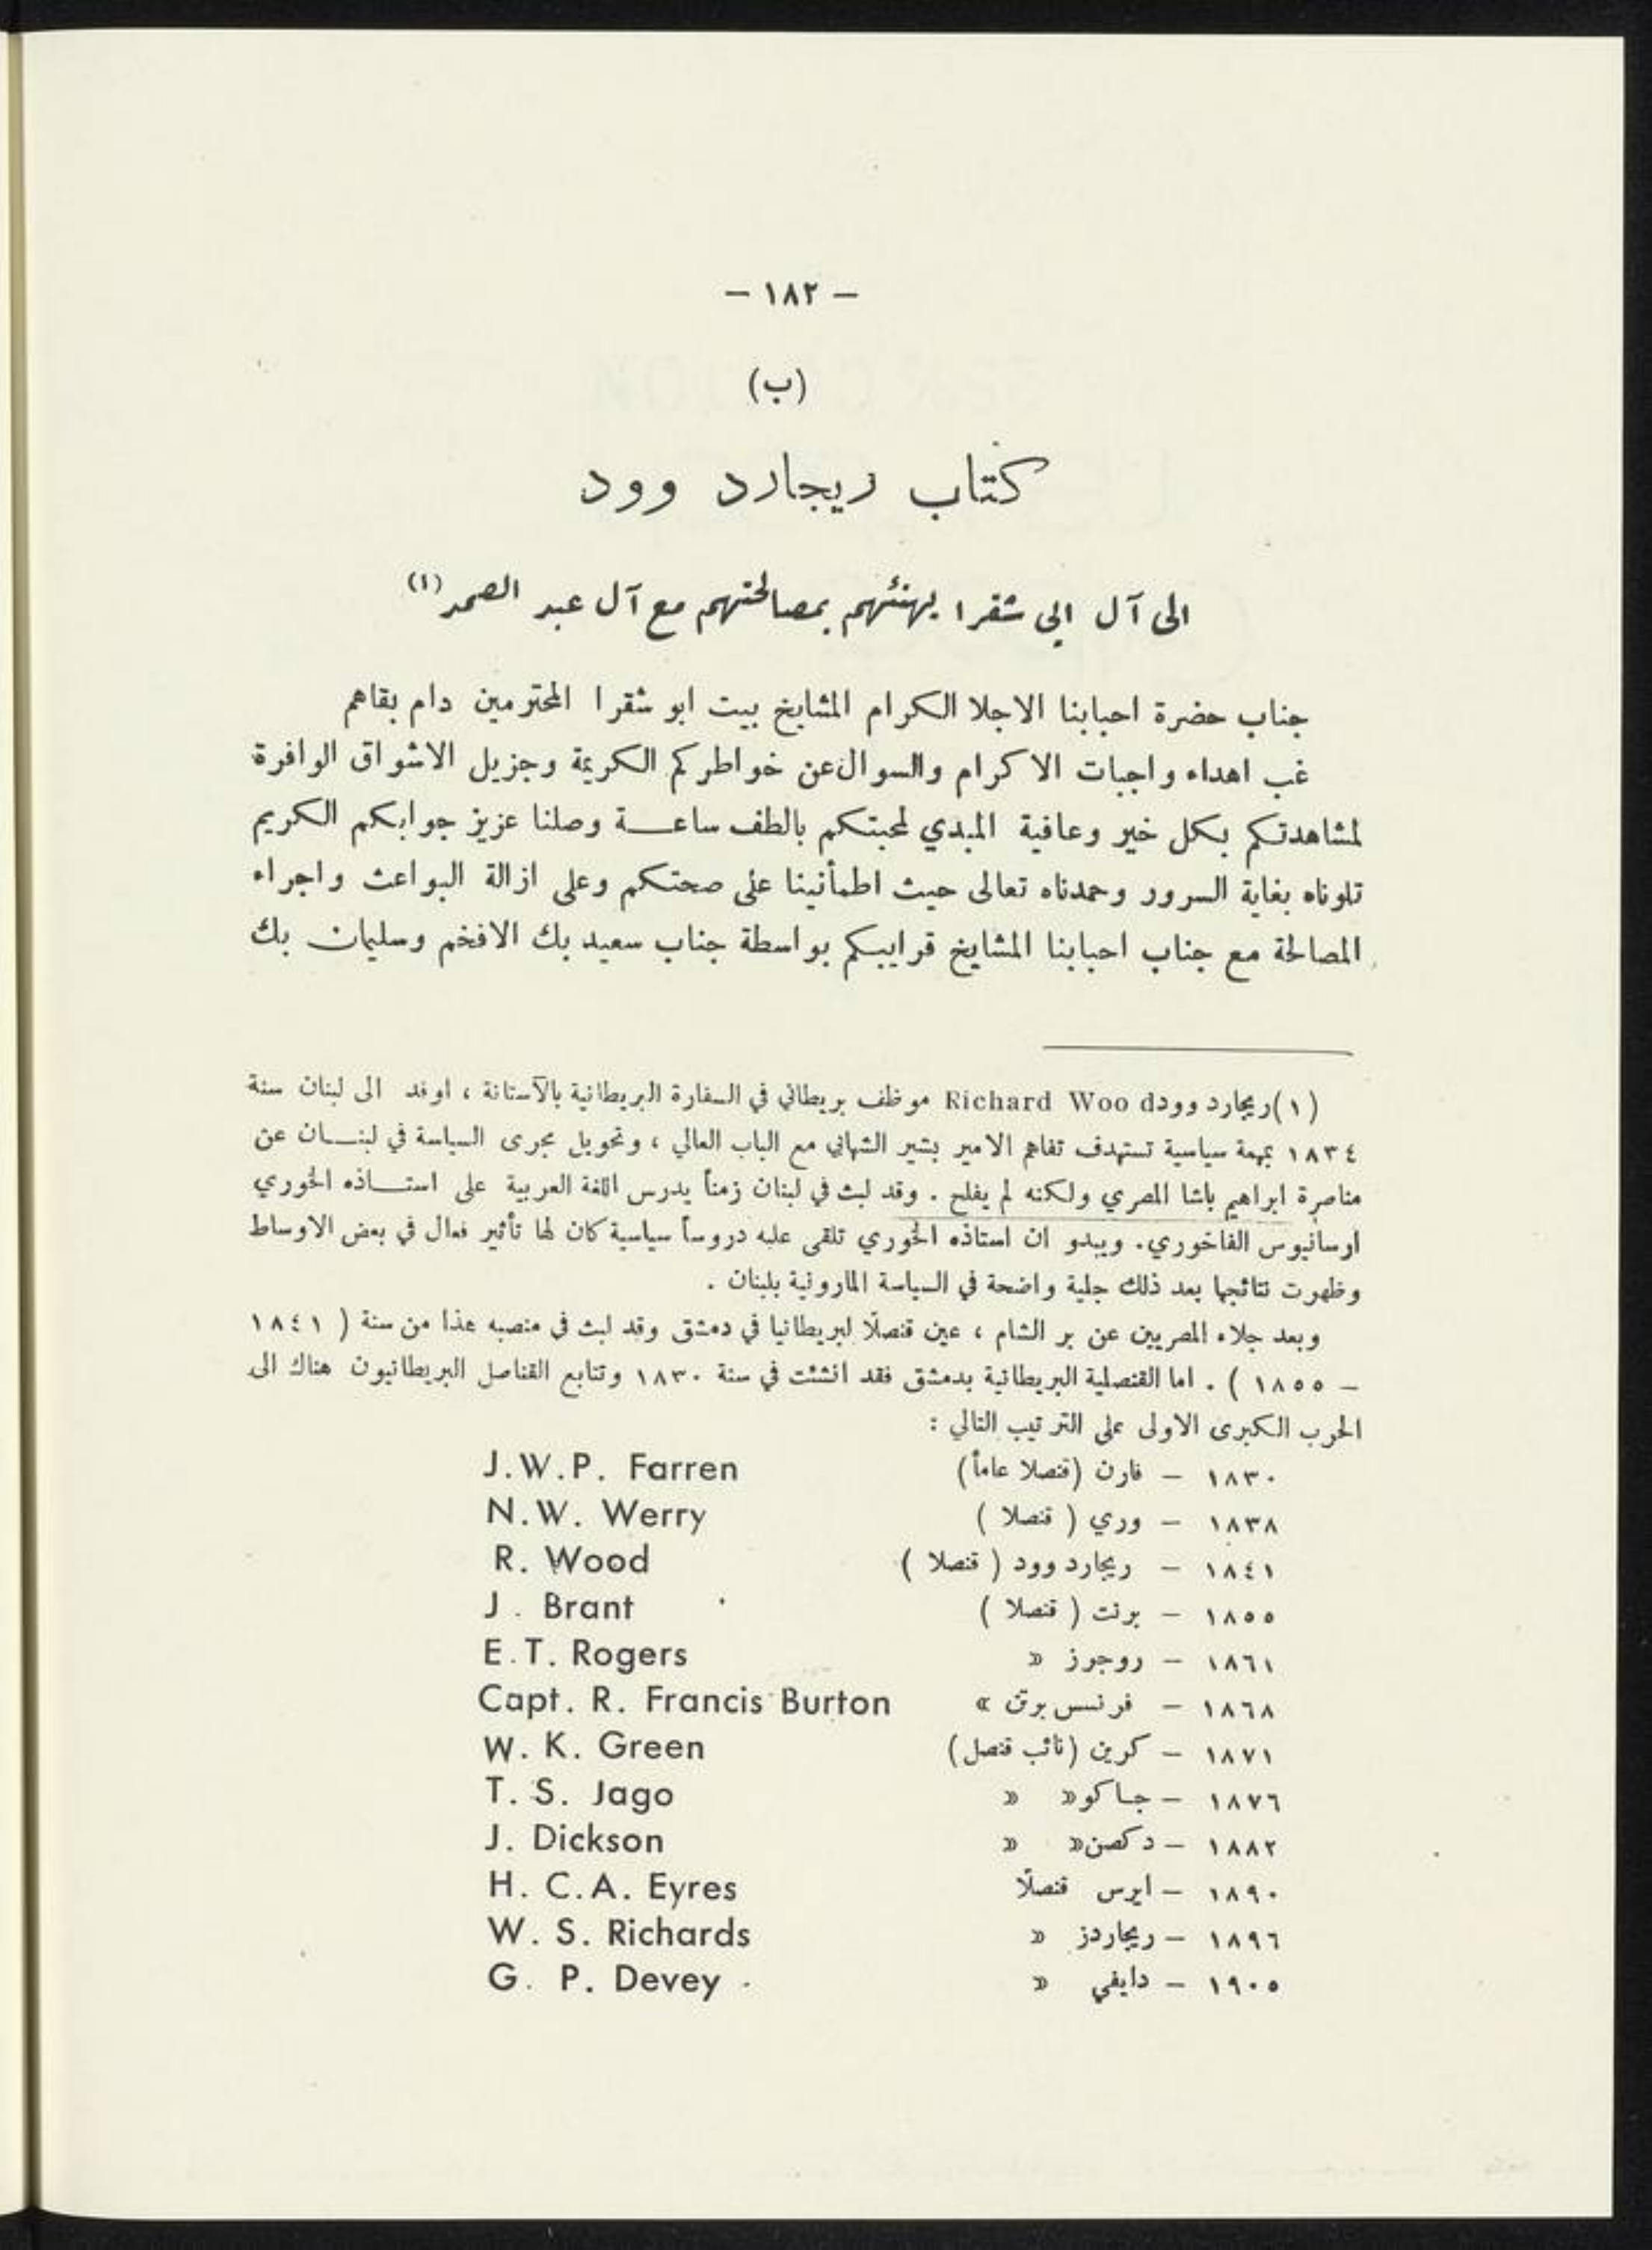 — ١٨٢ —
(ب)
كتاب ريجارد وود
الى آل ابي شقرا يهنئهم بمصالحتهم مع آل عبد الصمد (١)
جناب حضرة احبابنا الاجلا الكرام المشايخ بيت ابو شقرا المحترمين دام بقاهم
غب اهداء واجبات الاكرام والسوال عن خواطركم الكريمة وجزيل الاشواق الوافرة
لمشاهدتكم بكل خير وعافية المبدي لمحبتكم بالطف ساعـــة وصلنا عزيز جوابكم الكريم
تلوناه بغاية السرور وحمدناه تعالى حيث اطمأنينا على صحتكم وعلى ازالة البواعث واجراء
المصالحة مع جناب احبابنا المشايخ قرايبكم بواسطة جناب سعيد بك الافخم وسليمان بك
(١) ريجارد وود Richard Woo d موظف بريطاني في السفارة البريطانية بالآستانة ، اوفد الى لبنان سنة
١٨٣٤ بمهمة سياسية تستهدف تفاهم الامير بشير الشهابي مع الباب العالي ، وتحويل مجرى السياسة في لبنـــان عن
مناصرة ابراهيم باشا المصري ولكنه لم يفلح . وقد لبث في لبنان زمناً يدرس اللغة العربية على استـــاذه الخوري
ارسانيوس الفاخوري. ويبدو ان استاذه الخوري تلقى عليه دروساً سياسية كان لها تأثير فعال في بعض الاوساط
وظهرت نتائجها بعد ذلك جلية واضحة في السياسة المارونية بلبنان .
وبعد جلاء المصريين عن بر الشام ، عين قنصلًا لبريطانيا في دمشق وقد لبث في منصبه هذا من سنة ( ١٨٤١
— ١٨٥٥ ) . اما القنصلية البريطانية بدمشق فقد انشئت في سنة ١٨٣٠ وتتابع القناصل البريطانيون هناك الى
الحرب الكبرى الاولى على الترتيب التالي :
١٨٣٠ — فارن (قنصلا عاماً) J.W.P. Farren
١٨٣٨ — وري ( قنصلا ) N.W. Werry
١٨٤١ — ريجارد وود ( قنصلا ) R. Wood
١٨٥٥ — برنت ( قنصلا ) J . Brant
١٨٦١ — روجرز » E.T. Rogers
١٨٦٨ — فرنسس برتن « Capt. R. Francis Burton
١٨٧١ — كرين (نائب قنصل) W. K. Green
١٨٧٦ — جاكو » » T. S. Jago
١٨٨٢ — دكصن » » J. Dickson
١٨٩٠ — ايرس قنصلًا H. C.A. Eyres
١٨٩٦ — ريجاردز » W. S. Richards
١٩٠٥ — دايفي » G. P. Devey